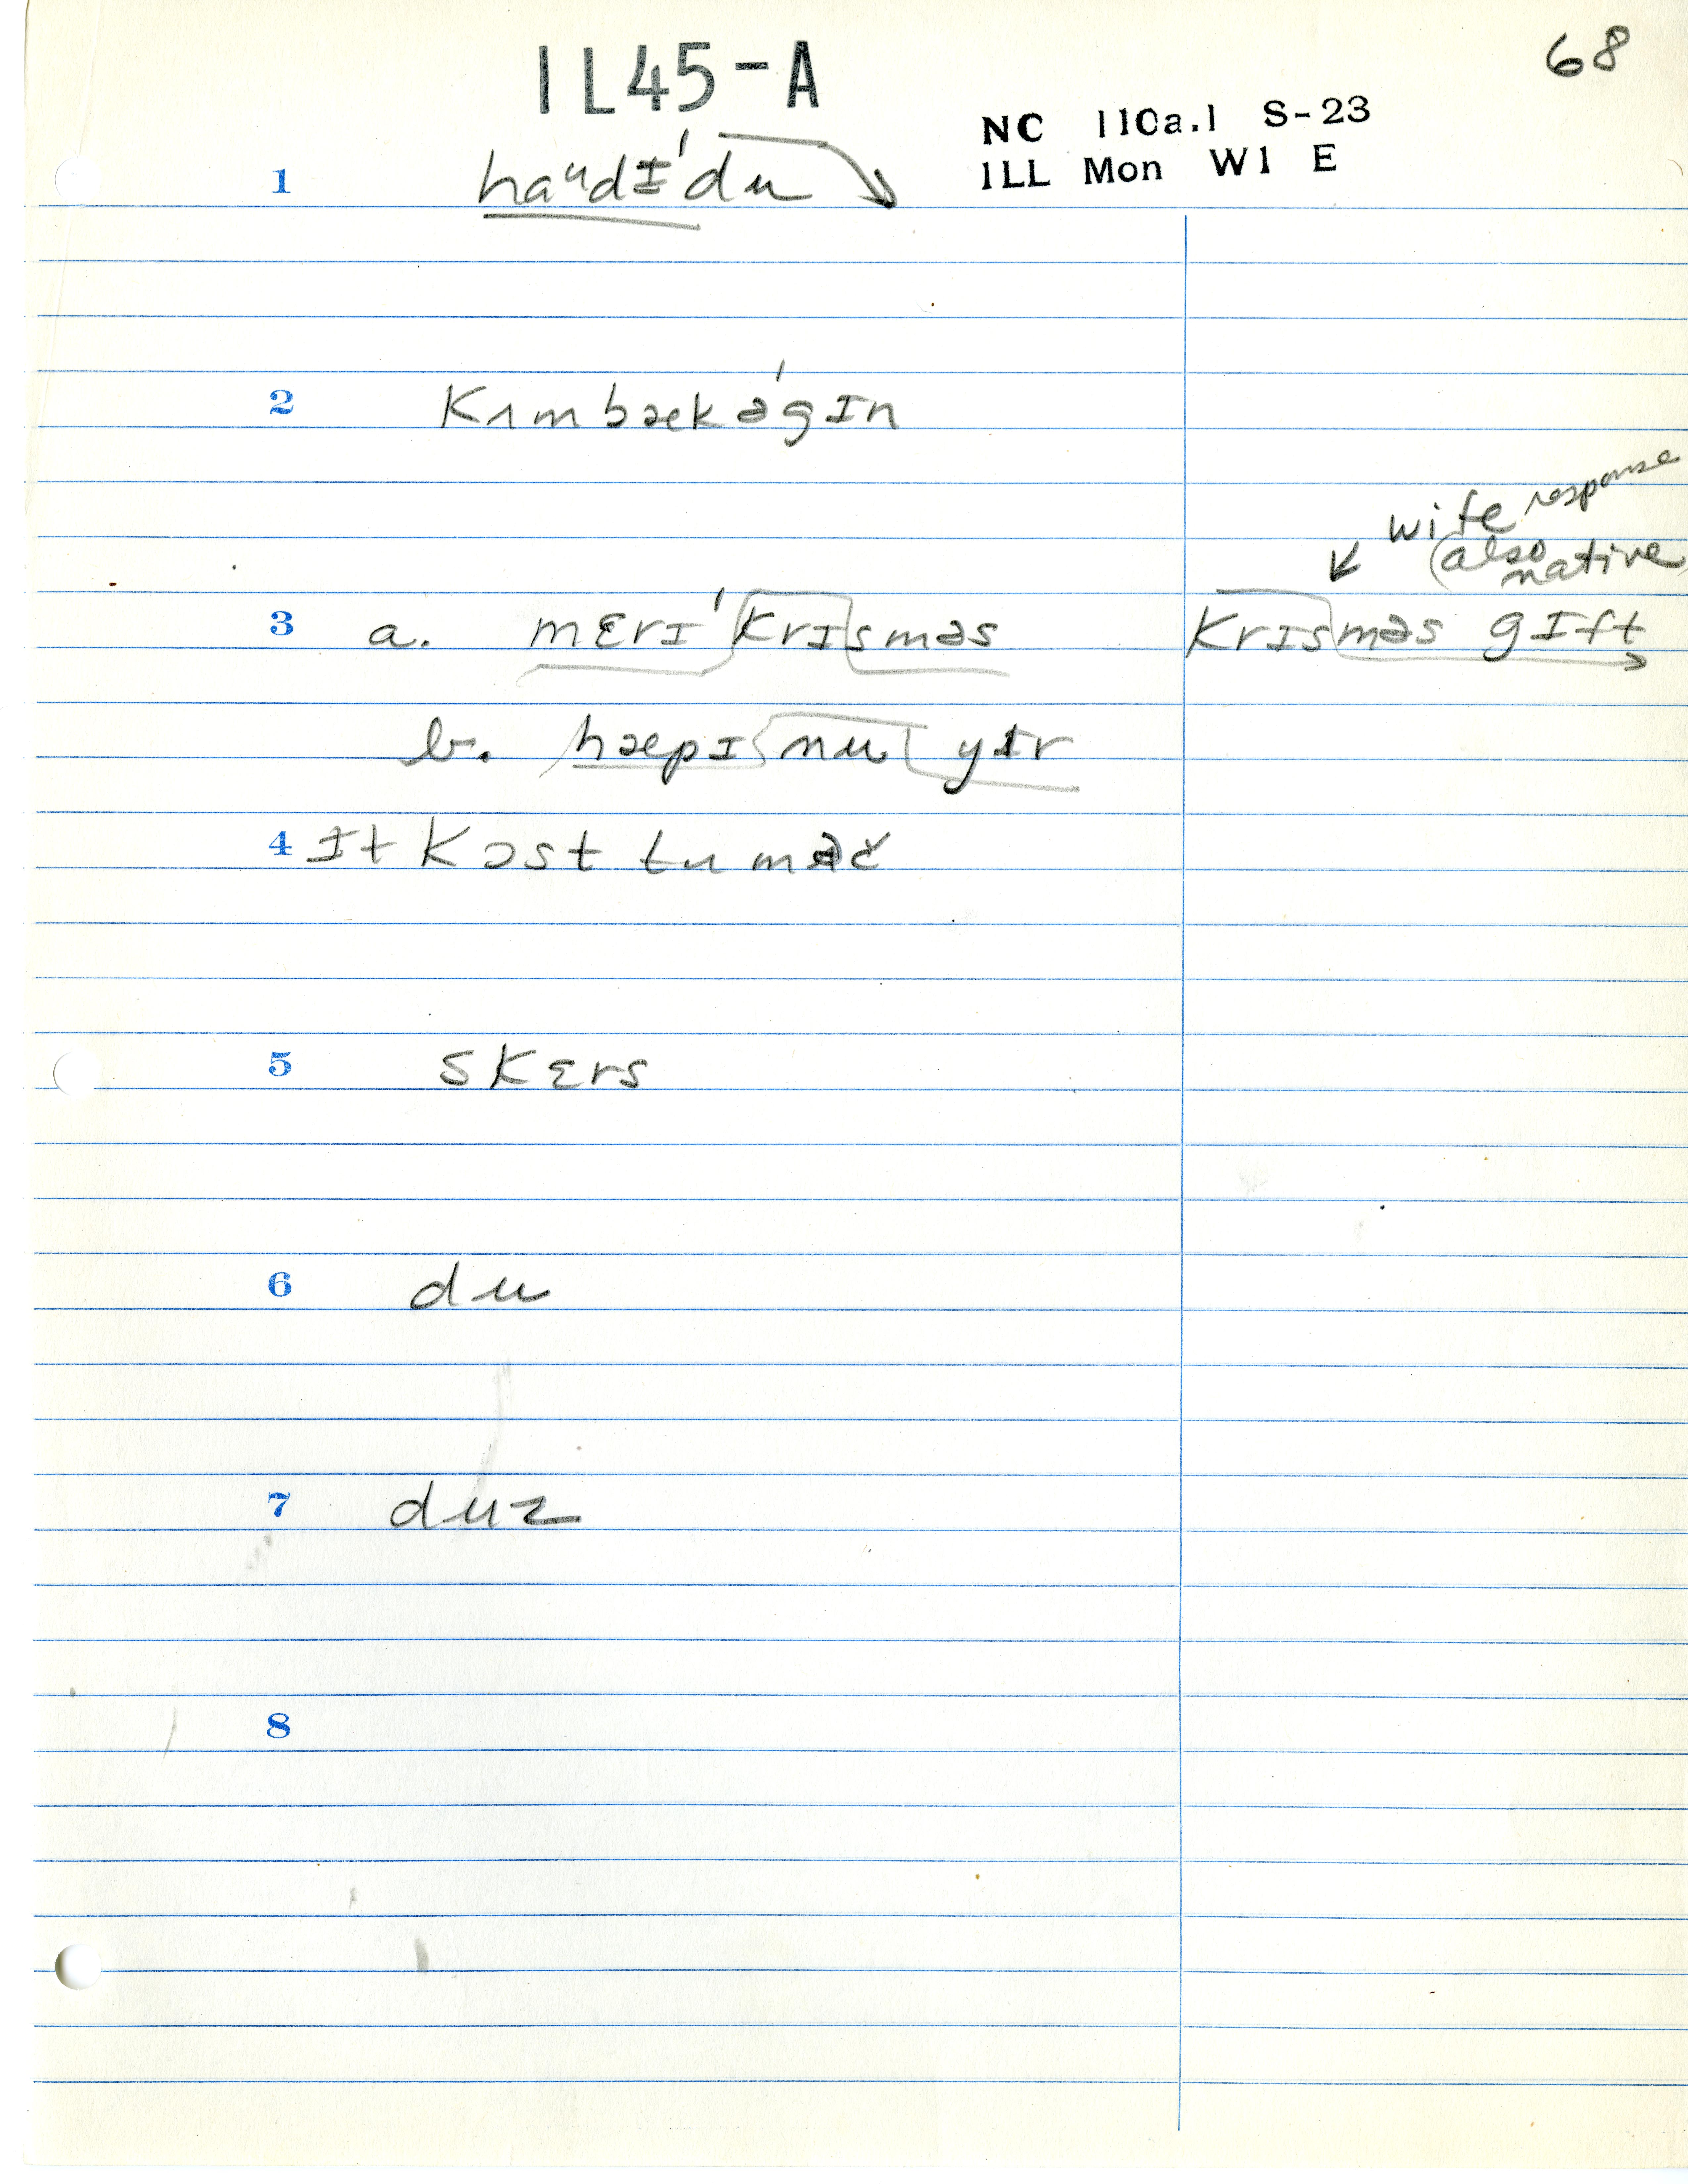 68
1L45-A
NC 110a.1 S-23
ILL Mon W1 E
1 haᵘdɪ'du
2 kʌmbæk ə'gɪn
wife response
(also native)
3 a. mɛrɪ 'krɪsməs krɪsməs gɪft
b. hæpɪ nu yɪr
4 ɪt kɔst tu məč
5 skɛrs
6 du
7 duz
8